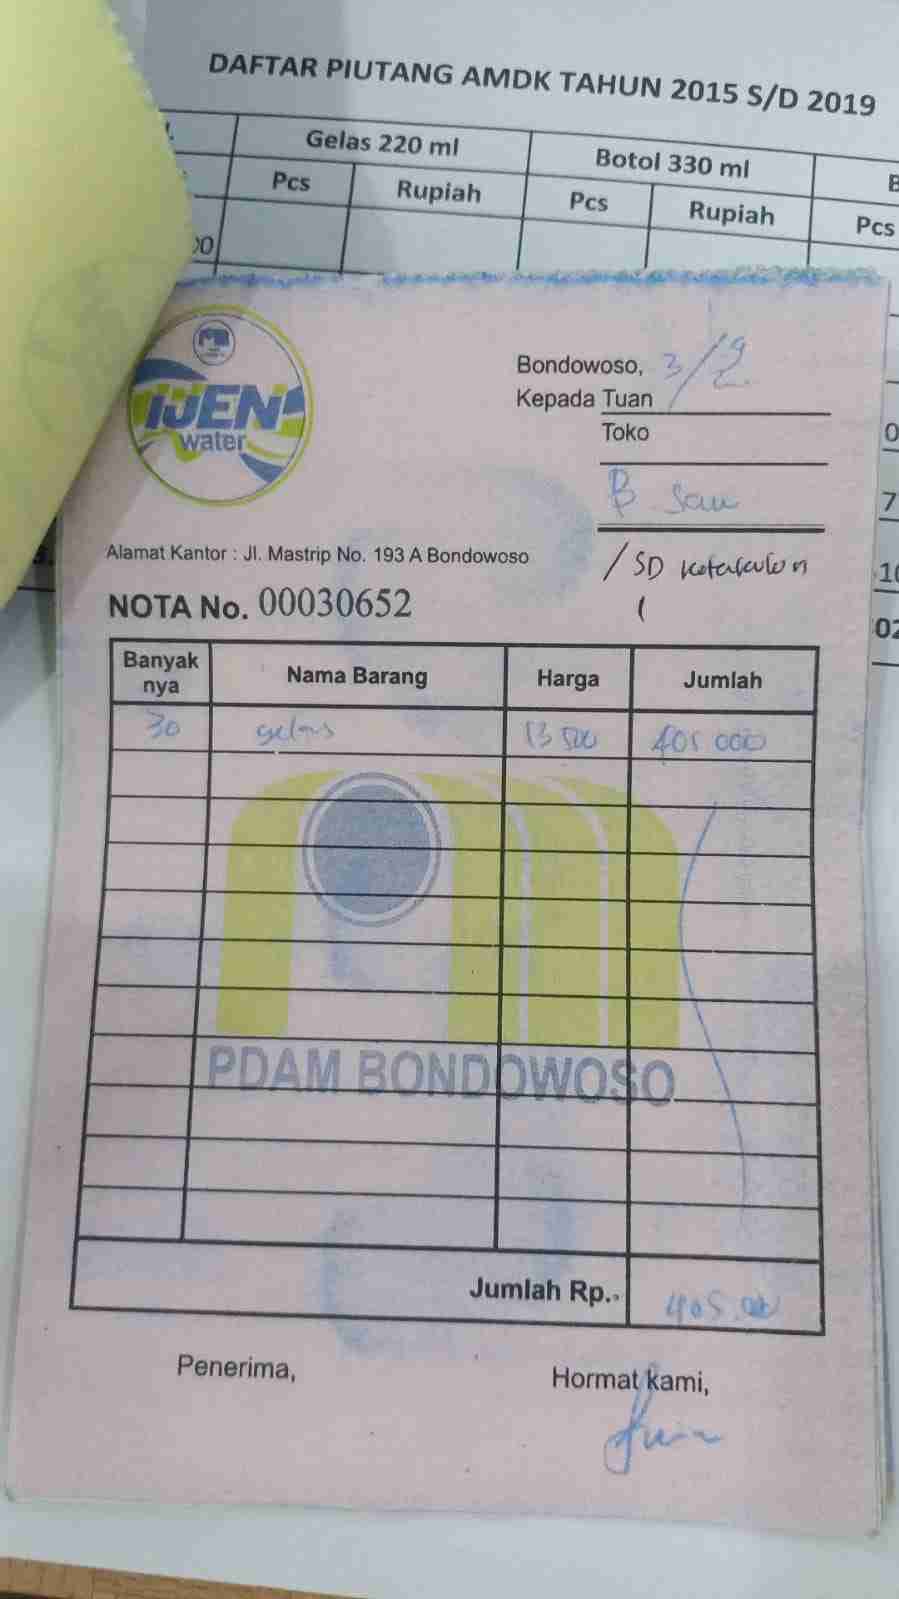 DAFTAR PIUTANG AMDK TAHUN 2015 S/D 2019
Gelas 220 ml Botol 330 ml B
Pcs Rupiah Pcs Rupiah Pcs
IJEN
water
Bondowoso, 3/9
Kepada Tuan
Toko
B Sau
/ SD Kotakulon 1
Alamat Kantor : Jl. Mastrip No. 193 A Bondowoso
NOTA No. 00030652
Banyak nya Nama Barang Harga Jumlah
30 gelas 13 500 405 000
PDAM BONDOWOSO
Jumlah Rp.- 405.000
Penerima, Hormat kami,